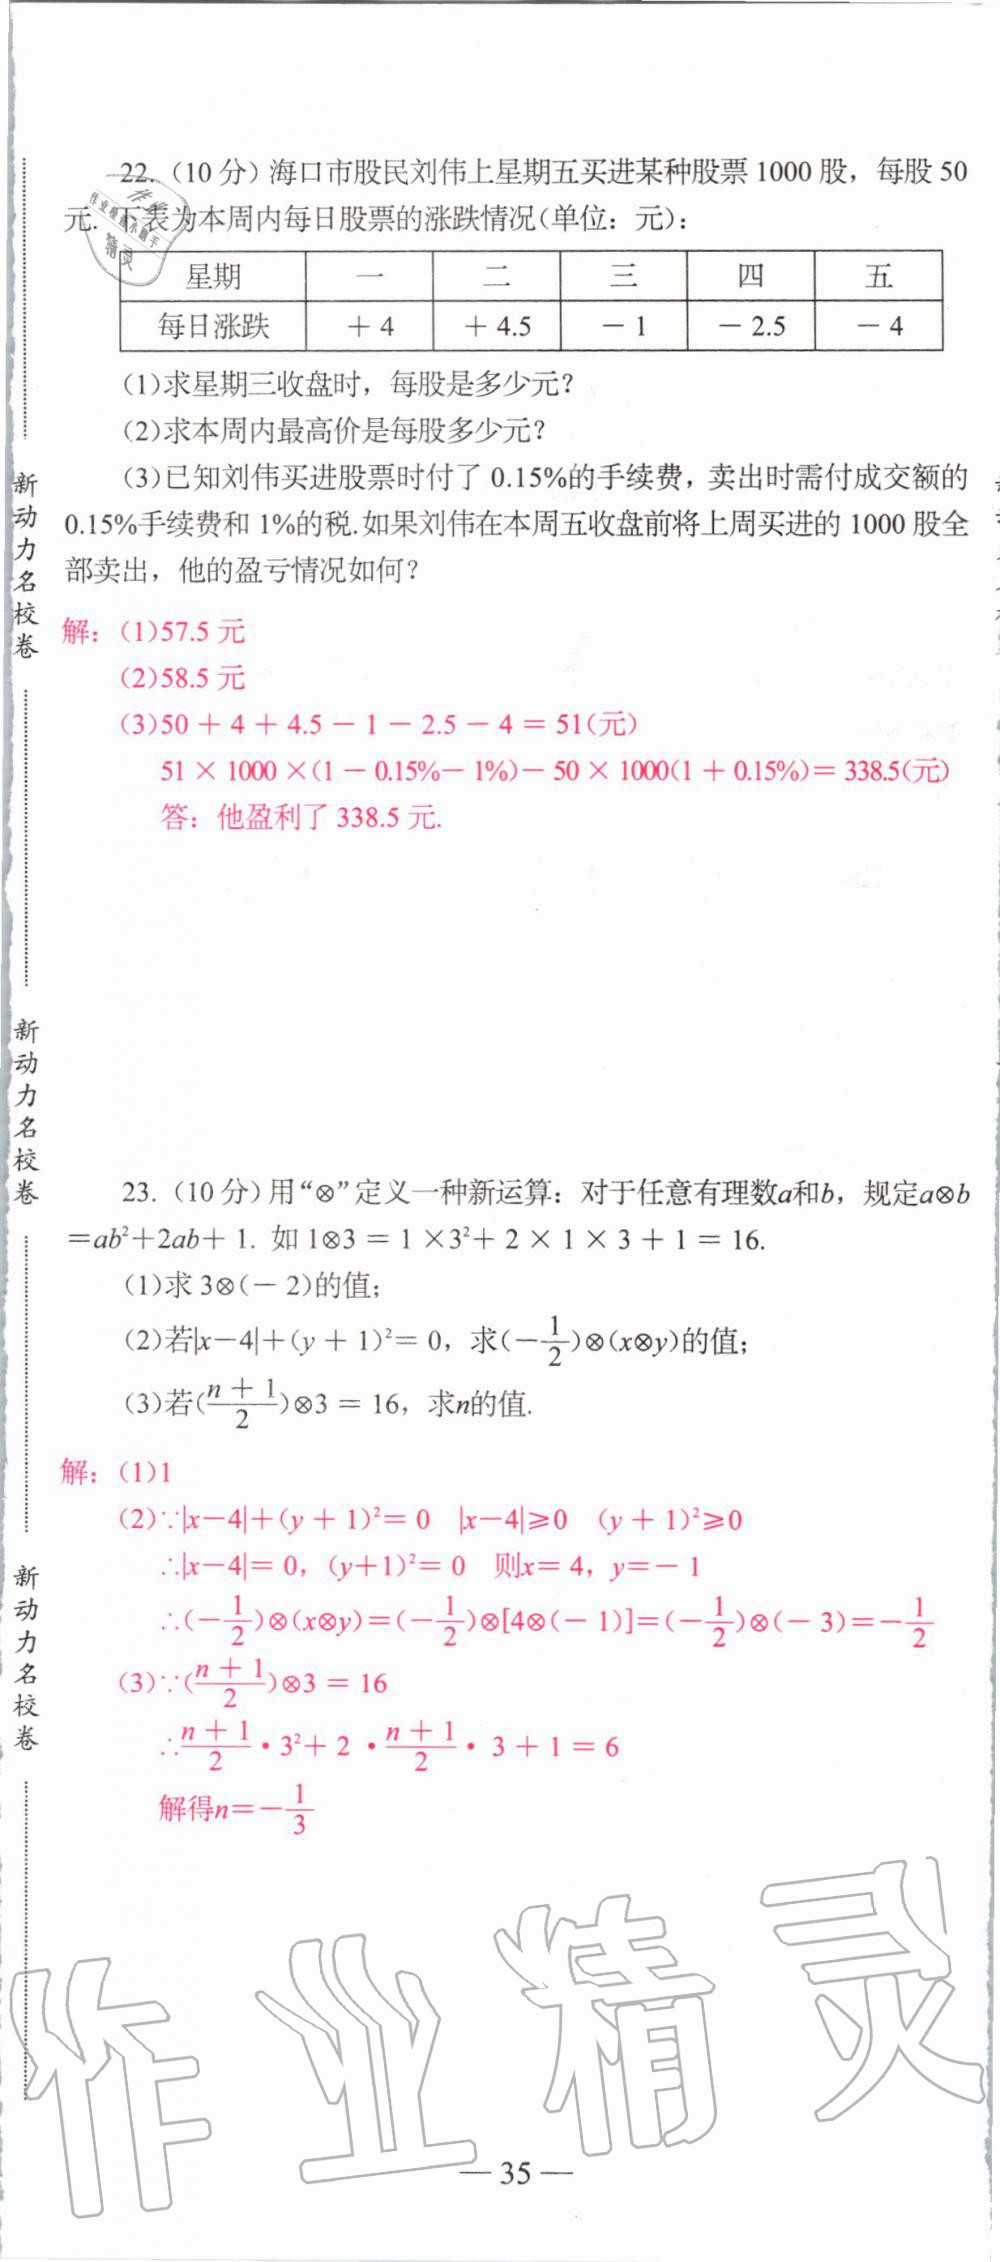 22.（10分）海口市股民刘伟上星期五买进某种股票1000股，每股50
元. 下表为本周内每日股票的涨跌情况（单位：元）：
星期 一 二 三 四 五
每日涨跌 ＋4 ＋4.5 －1 －2.5 －4
（1）求星期三收盘时，每股是多少元？
（2）求本周内最高价是每股多少元？
（3）已知刘伟买进股票时付了0.15%的手续费，卖出时需付成交额的
0.15%手续费和1%的税.如果刘伟在本周五收盘前将上周买进的1000股全
部卖出，他的盈亏情况如何？
解：（1）57.5元
（2）58.5元
（3）50＋4＋4.5－1－2.5－4＝51（元）
51×1000×（1－0.15%－1%）－50×1000（1＋0.15%）＝338.5（元）
答：他盈利了338.5元.
23.（10分）用“⊗”定义一种新运算：对于任意有理数a和b，规定a⊗b
＝ab²＋2ab＋1. 如1⊗3＝1×3²＋2×1×3＋1＝16.
（1）求3⊗（－2）的值；
（2）若|x－4|＋（y＋1）²＝0，求（－1/2）⊗（x⊗y）的值；
（3）若（(n＋1)/2）⊗3＝16，求n的值.
解：（1）1
（2）∵|x－4|＋（y＋1）²＝0 |x－4|≥0 （y＋1）²≥0
∴|x－4|＝0，（y＋1）²＝0 则x＝4，y＝－1
∴（－1/2）⊗（x⊗y）＝（－1/2）⊗[4⊗（－1）]＝（－1/2）⊗（－3）＝－1/2
（3）∵（(n＋1)/2）⊗3＝16
∴(n＋1)/2・3²＋2・(n＋1)/2・3＋1＝6
解得n＝－1/3
— 35 —
新动力名校卷
新动力名校卷
新动力名校卷
作业精灵
作业检查小助手
精灵
作业精灵